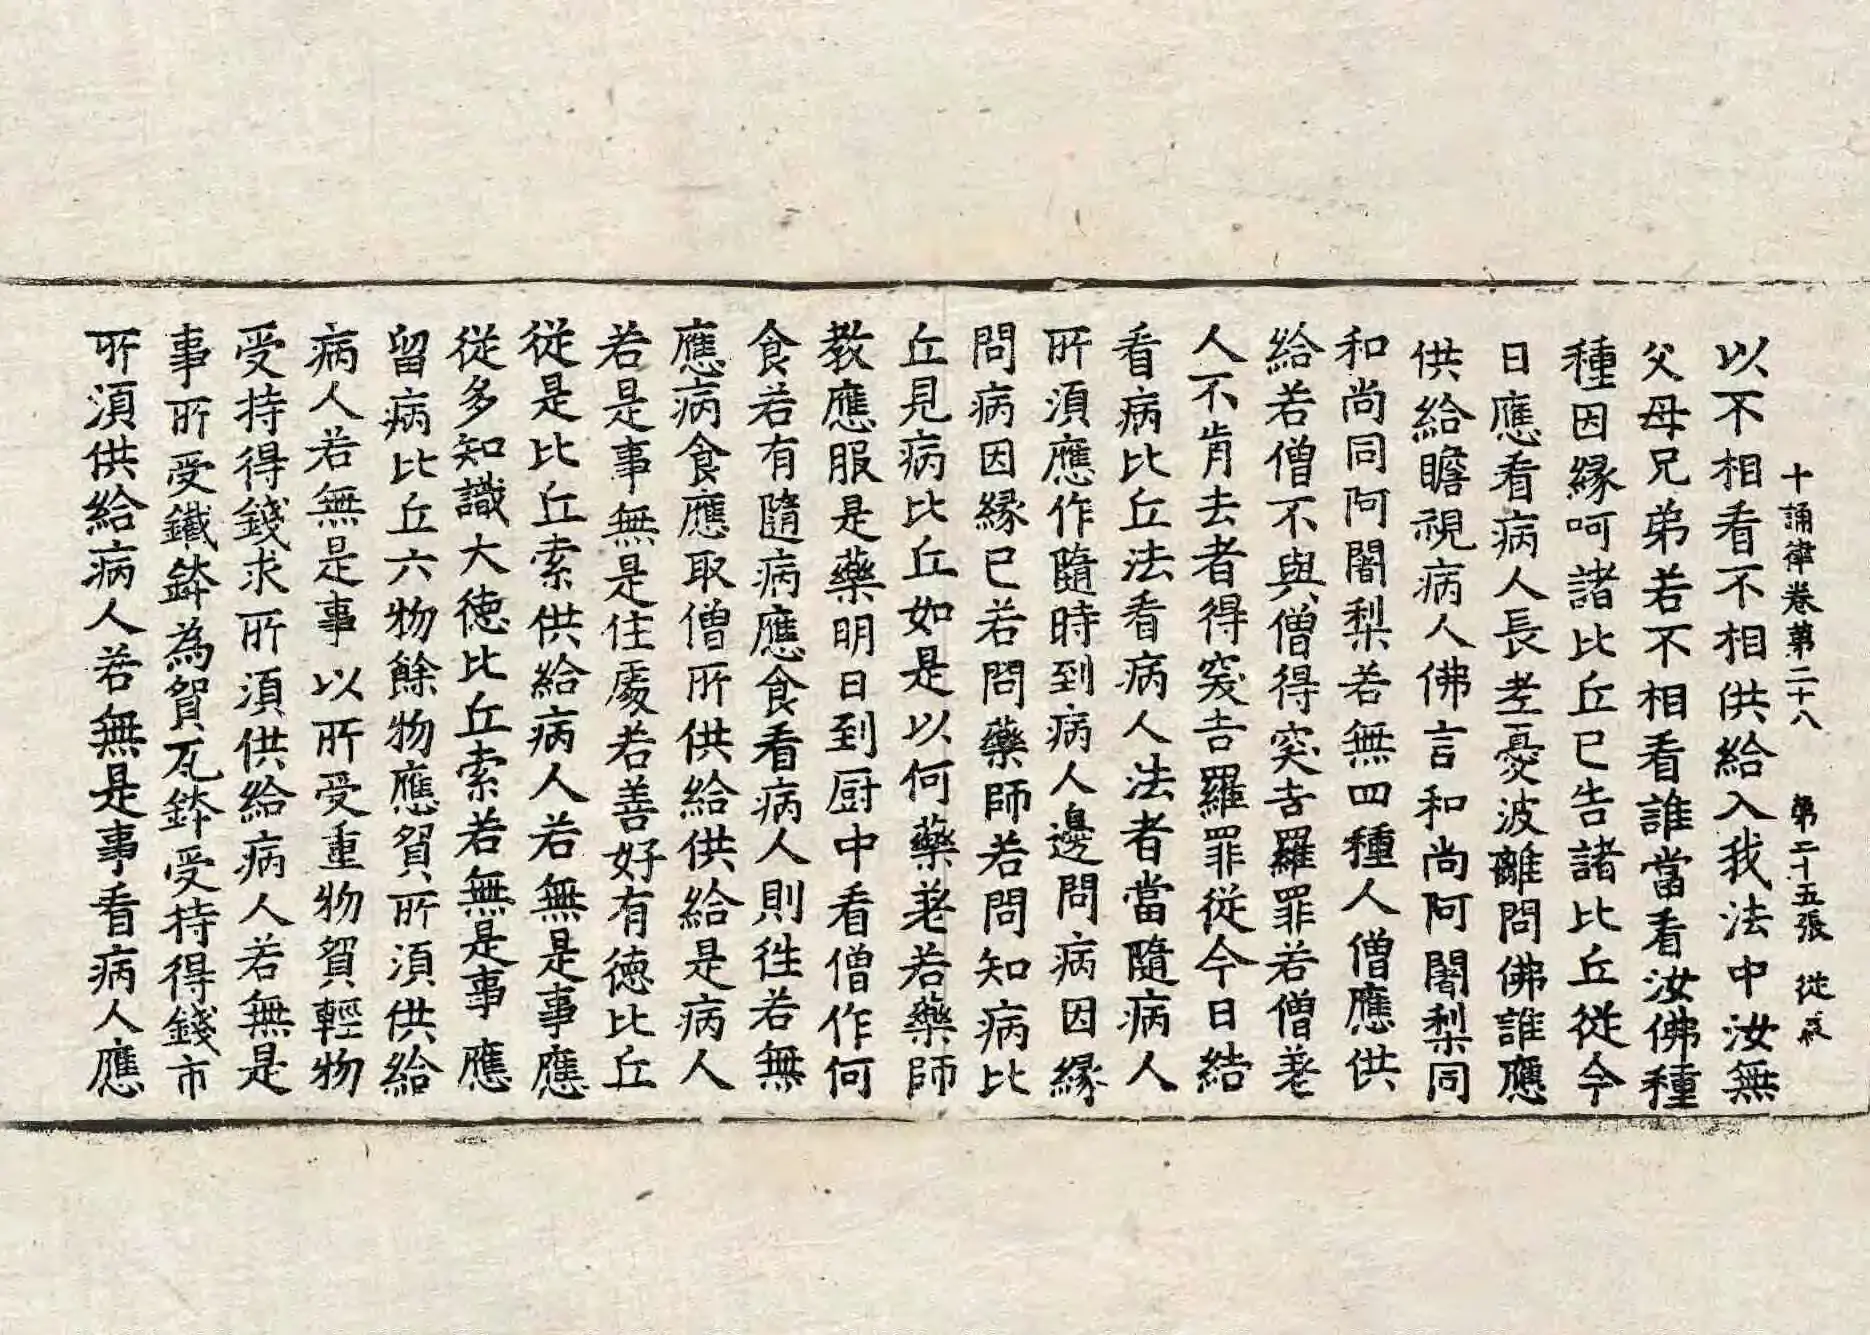 十誦律卷第二十八 第二十五張 從
以不相看不相供給入我法中汝無
父母兄弟若不相看誰當看汝佛種
種因緣呵諸比丘已告諸比丘從今
日應看病人長老憂波離問佛誰應
供給瞻視病人佛言和尚阿闍梨同
和尚同阿闍梨若無四種人僧應供
給若僧不與僧得突吉羅罪若僧差
人不肯去者得突吉羅罪從今日結
看病比丘法看病人法者當隨病人
所須應作隨時到病人邊問病因緣
問病因緣已若問藥師若問知病比
丘見病比丘如是以何藥差若藥師
教應服是藥明日到厨中看僧作何
食若有隨病應食看病人則徃若無
應病食應取僧所供給供給是病人
若是事無是住處若善好有徳比丘
從是比丘索供給病人若無是事應
從多知識大徳比丘索若無是事應
留病比丘六物餘物應貿所須供給
病人若無是事以所受重物貿輕物
受持得錢求所須供給病人若無是
事所受鐵鉢為貿瓦鉢受持得錢市
所須供給病人若無是事看病人應